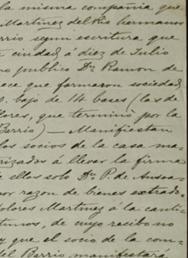 la misma compañia que
Martinez del Rio hermanos
segun escritura que
ciudad á diez de Julio
no publico Dn Ramon de
ece que formaron sociedad
bajo de 14 bases (las de
lores, que termino por la
Berrio) — Manifiestan
los socios de la casa ma-
rizados á llevar la firma
e ellos solo Dn P. de Ansoa-
or razon de bienes estrado-
olores Martinez á la canti-
de cuyo recibo no
y que el socio de la com-
del Berrio manifestará